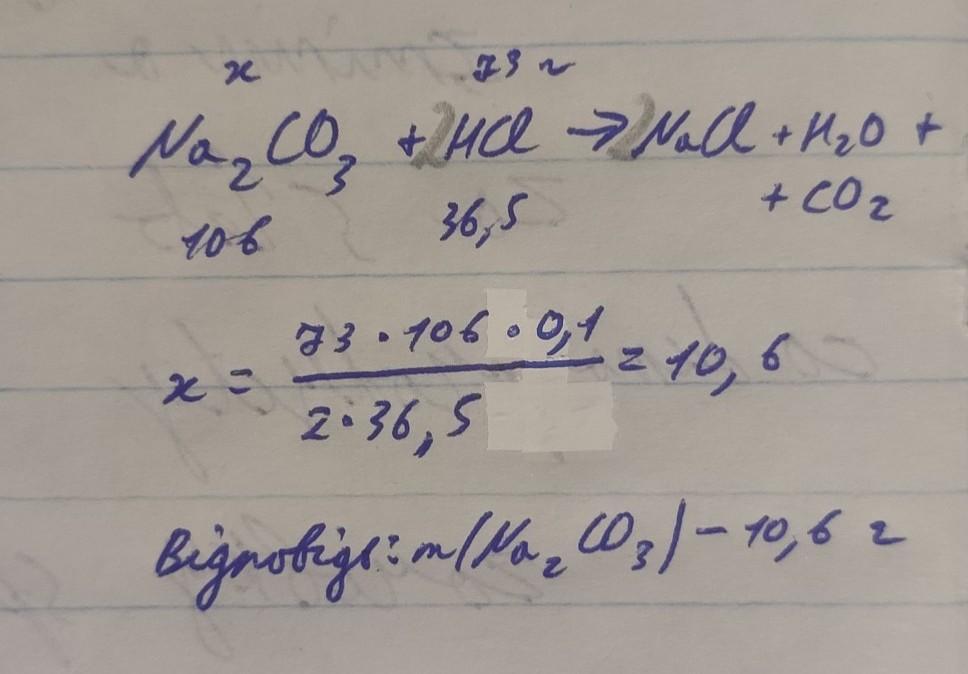 x 73 г
Na₂CO₃ + 2HCl → 2NaCl + H₂O +
+ CO₂
106 36,5
x = (73 · 106 · 0,1) / (2 · 36,5) = 10,6
Відповідь: m(Na₂CO₃) – 10,6 г